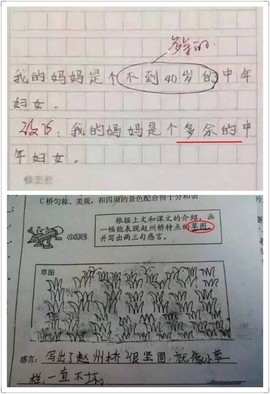 多余的
我的妈妈是个不到40岁的中年
妇女。
改为：我的妈妈是个多余的中
年妇女。
C桥匀称、美观，和四周的景色配合得十分和谐
根据上文和课文的介绍，画
一幅能表现赵州桥特点的草图，
并写出两三句感言。
草图
感言：写出了赵州桥很坚固，就像小草
一样，一直不